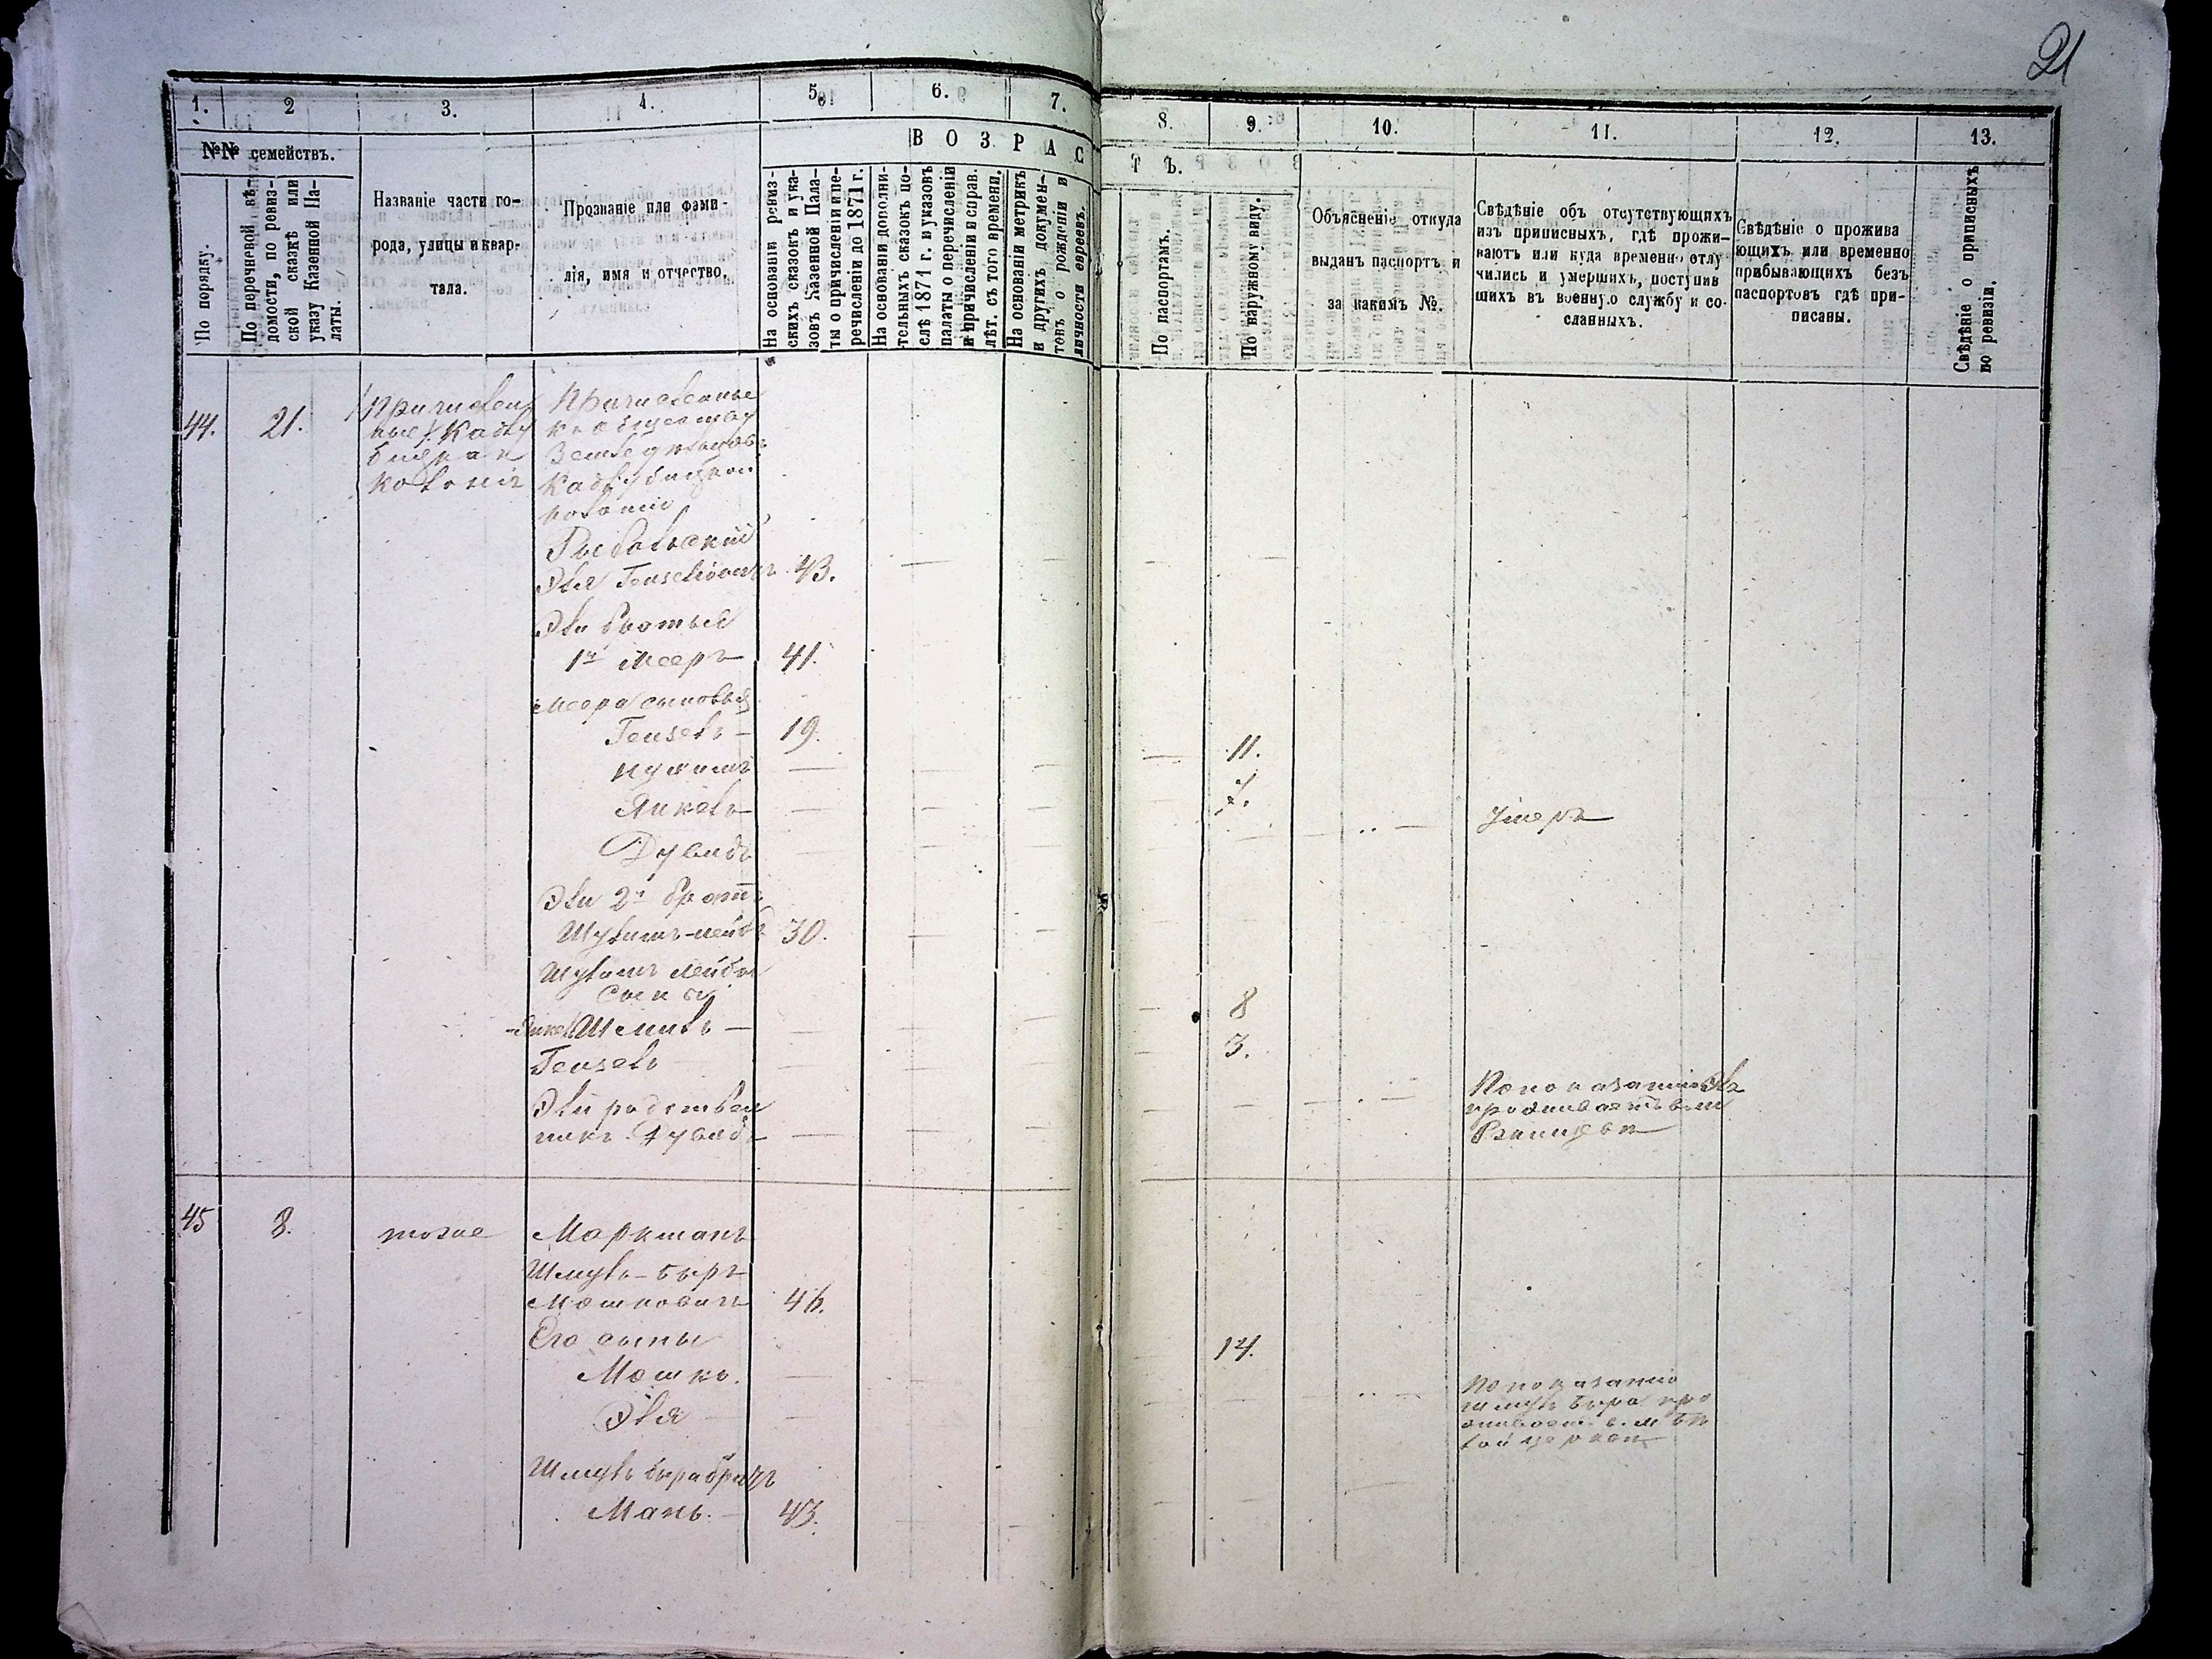 21
1.
2
3.
4.
5.
6.
7.
8.
9.
10.
11.
12.
13.
№№ семействъ.
По порядку.
По перечневой вѣ-
домости, по ревиз-
ской сказкѣ или
указу Казенной Па-
латы.
Названіе части го-
рода, улицы и квар-
тала.
Прозваніе или фами-
лія, имя и отчество.
ВОЗРАС
ТЪ.
На основаніи ревиз-
скихъ сказокъ и ука-
зовъ Казенной Пала-
ты о причисленіи и пе-
речисленіи до 1871 г.
На основаніи дополни-
тельныхъ сказокъ по-
слѣ 1871 г. и указовъ
палаты о перечисленіи
и причисленіи и справ.
лѣт. съ того времени.
На основаніи метрикъ
и другихъ докумен-
товъ о рожденіи и
личности евреевъ.
По паспортамъ.
По наружному виду.
Объясненіе откуда
выданъ паспортъ и
за какимъ №.
Свѣдѣніе объ отсутствующихъ
изъ приписныхъ, гдѣ прожи-
ваютъ или куда временно отлу
чились и умершихъ, поступив
шихъ въ военную службу и со-
сланныхъ.
Свѣдѣніе о прожива
ющихъ или временно
прибывающихъ безъ
паспортовъ гдѣ при-
писаны.
Свѣдѣніе о приписныхъ
по ревизіи.
44. 21.
Причислен
ные
колоніи
Причисленные
къ обществу
Земледѣльцовъ
колоніи
Эля Гензелiовичъ 43.
Эли братья
1й Мееръ 41.
Меера сыновья
Гензель 19.
11.
Янкель
7.
Дувидъ
Умеръ
Эли 2й братъ
Шулимъ-Лейба 30.
Шулимъ Лейбы
сыны
Янкель Шмиль 8
Гензель 3.
Эли родствен
никъ Дувидъ
По показанію Эля
проживаетъ въ м
45 8. тоже Маркманъ
Шмуль-Беръ
Мошковичъ 46.
Его сыны
Мошко. 14.
Эля
По показанію
Шмуль Бера про
живаетъ в. м Бѣ
лой церкви
Шмуль Бера братъ
Мань. 43.